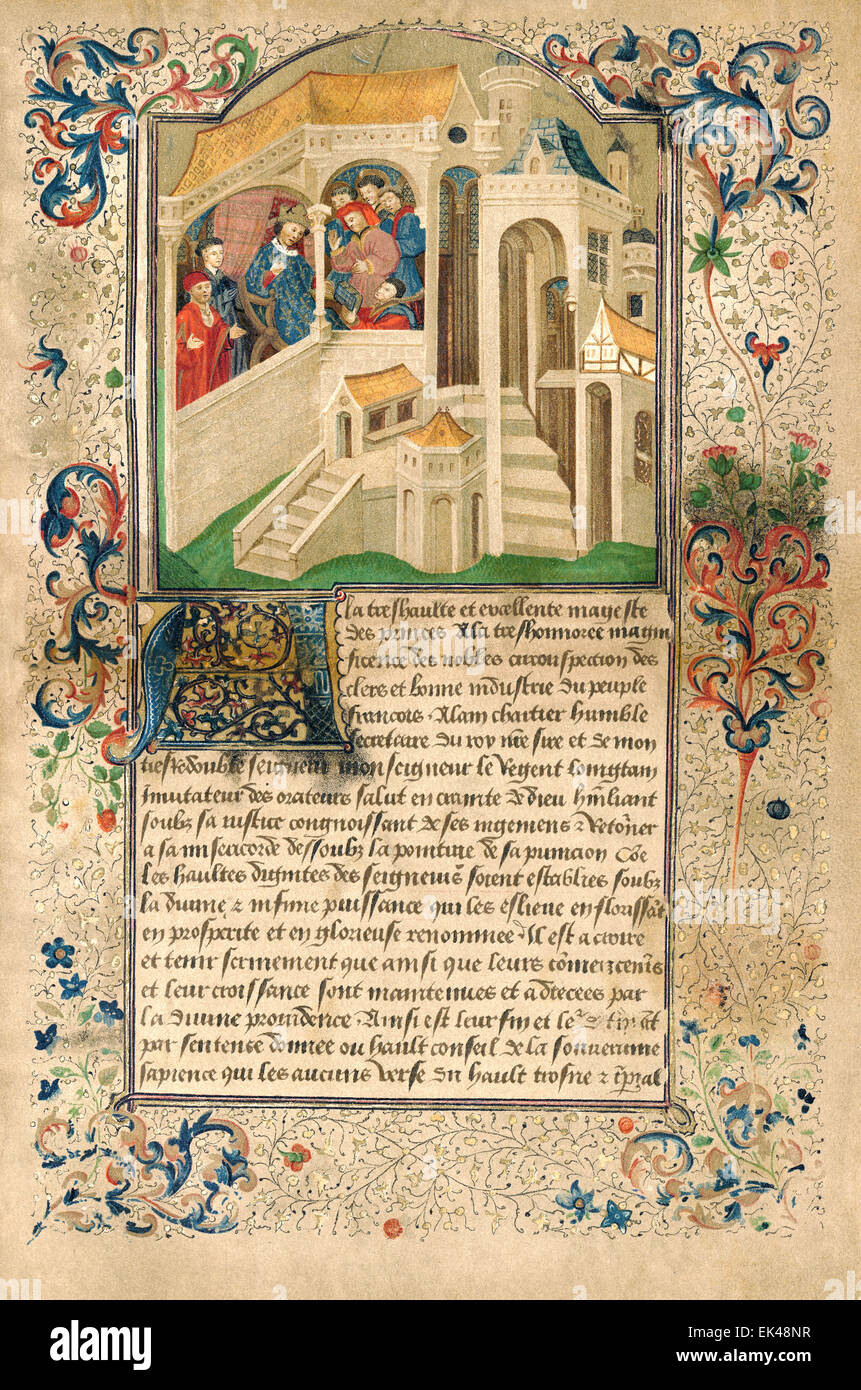 A la treshaulte et excellente mageste
des princes A la treshonnoree magni
ficence des nobles circonspection des
clers et bonne industrie du peuple
francois. Alain chartier humble
secretaire du roy nre sire et de mon
tresredoubte seigneur monseigneur le Regent loingtain
Imitateur des orateurs salut en crainte de dieu humiliant
soubz sa iustice congnoissant de ses iugemens z Retorner
a sa misericorde dessoubz la pointure de sa punicion Cõe
les haultes dignites des seigneurs soient establies soubz
la divine z infinie puissance qui les eslieve en florissãt
en prosperite et en glorieuse renommee. Il est a croire
et tenir fermement que ainsi que leurs cõmencemẽs
et leur croissance sont maintenues et adrecees par
la divine providence. Ainsi est leur fin et le
par sentense donnee ou hault conseil de la souveraine
sapience qui les aucuns verse du hault trosne z ĩpial
alamy
Image ID: EK48NR
www.alamy.com